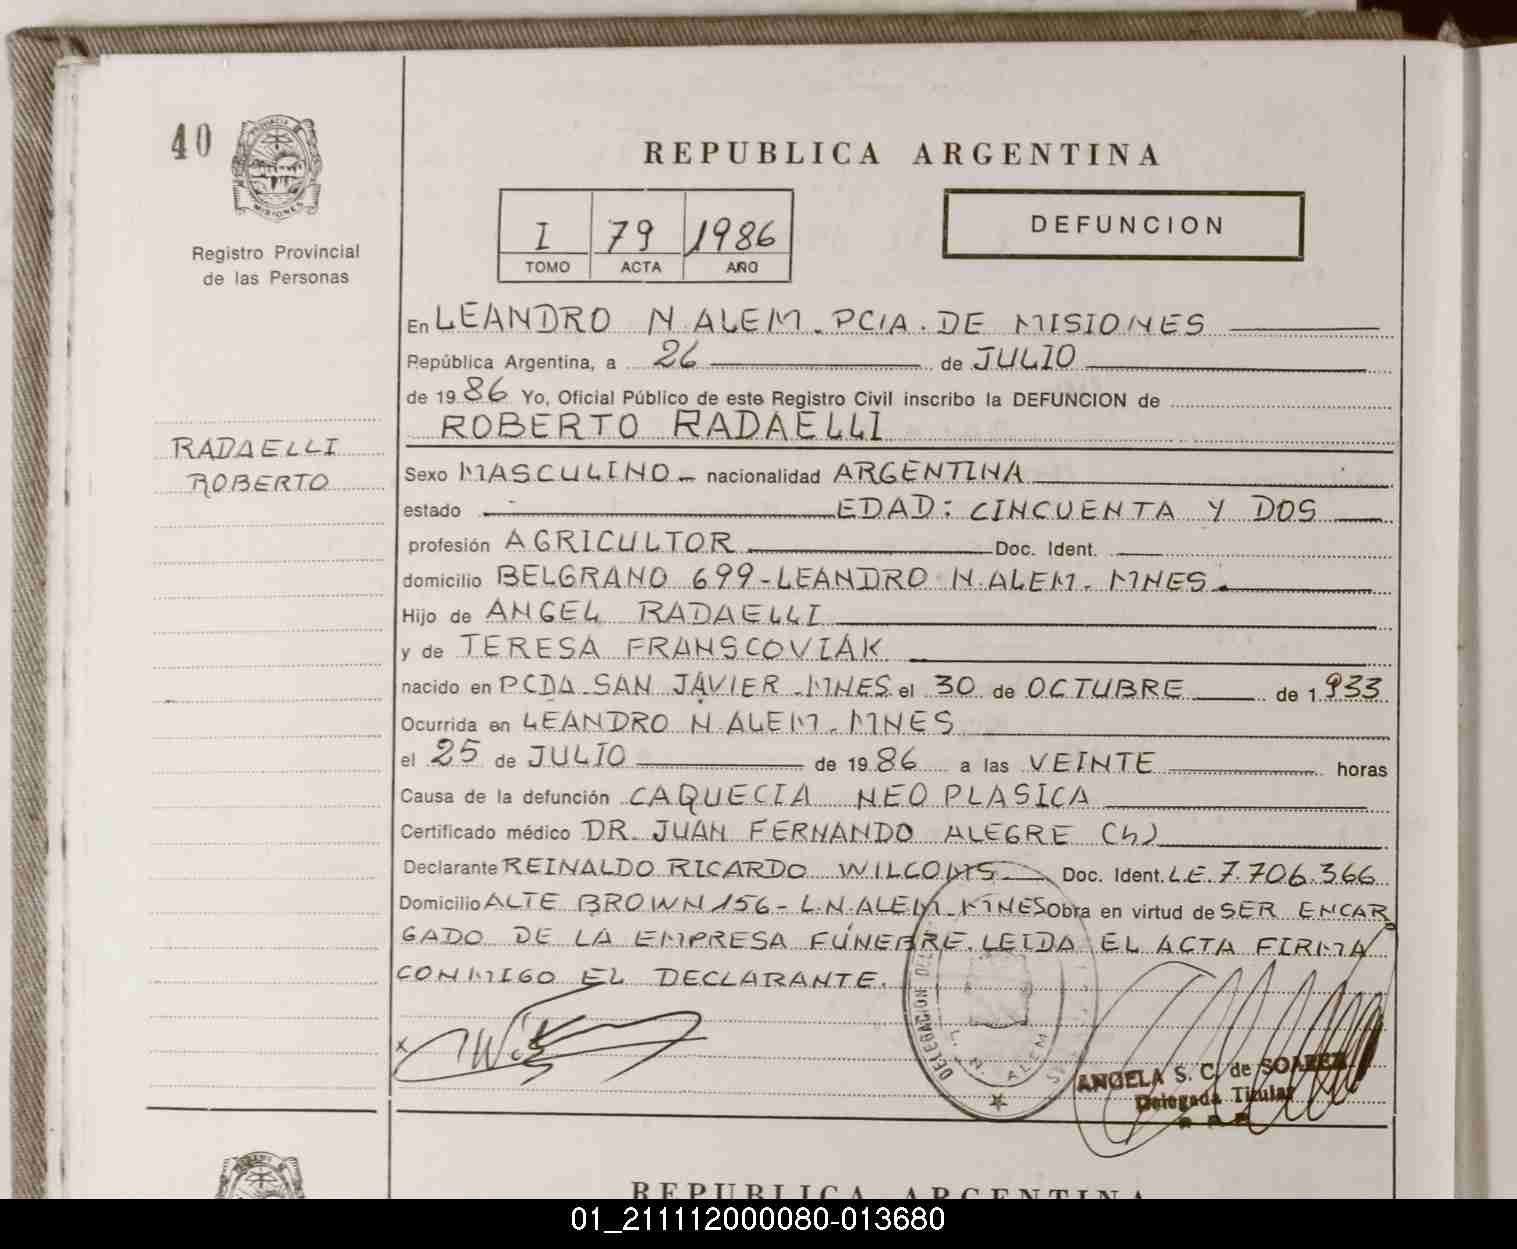 40
PROVINCIA DE
MISIONES
Registro Provincial
de las Personas
RADAELLI
ROBERTO
REPUBLICA ARGENTINA
I 79 1986
TOMO ACTA AÑO
DEFUNCION
En LEANDRO N. ALEM. PCIA. DE MISIONES
República Argentina, a 26 de JULIO
de 1986 Yo, Oficial Público de este Registro Civil inscribo la DEFUNCION de
ROBERTO RADAELLI
Sexo MASCULINO nacionalidad ARGENTINA
estado EDAD: CINCUENTA Y DOS
profesión AGRICULTOR Doc. Ident.
domicilio BELGRANO 699-LEANDRO N. ALEM. MNES.
Hijo de ANGEL RADAELLI
y de TERESA FRANSCOVIAK
nacido en PCDA. SAN JAVIER. MNES. el 30 de OCTUBRE de 1.933
Ocurrida en LEANDRO N. ALEM. MNES
el 25 de JULIO de 1986 a las VEINTE horas
Causa de la defunción CAQUECIA NEO PLASICA
Certificado médico DR. JUAN FERNANDO ALEGRE (h)
Declarante REINALDO RICARDO WILCOMS Doc. Ident. L.E. 7.706.366
Domicilio ALTE BROWN 156- L.N. ALEM. MNES Obra en virtud de SER ENCAR
GADO DE LA EMPRESA FÚNEBRE. LEIDA EL ACTA FIRMA
CONMIGO EL DECLARANTE.
x
DELEGACION
L. N. ALEM
ANGELA S. C. de SOAREZ
Delegada Titular
REPUBLICA ARGENTINA
01_211112000080-013680